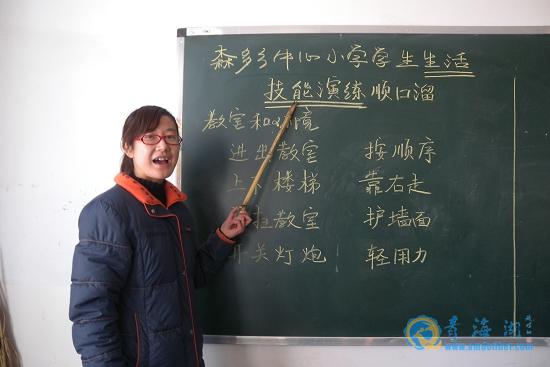 森多乡中心小学学生生活
技能演练顺口溜
教室和环境
进出教室 按顺序
上下楼梯 靠右走
扫教室 护墙面
开关灯炮 轻用力
青海湖
www.amdotibet.com